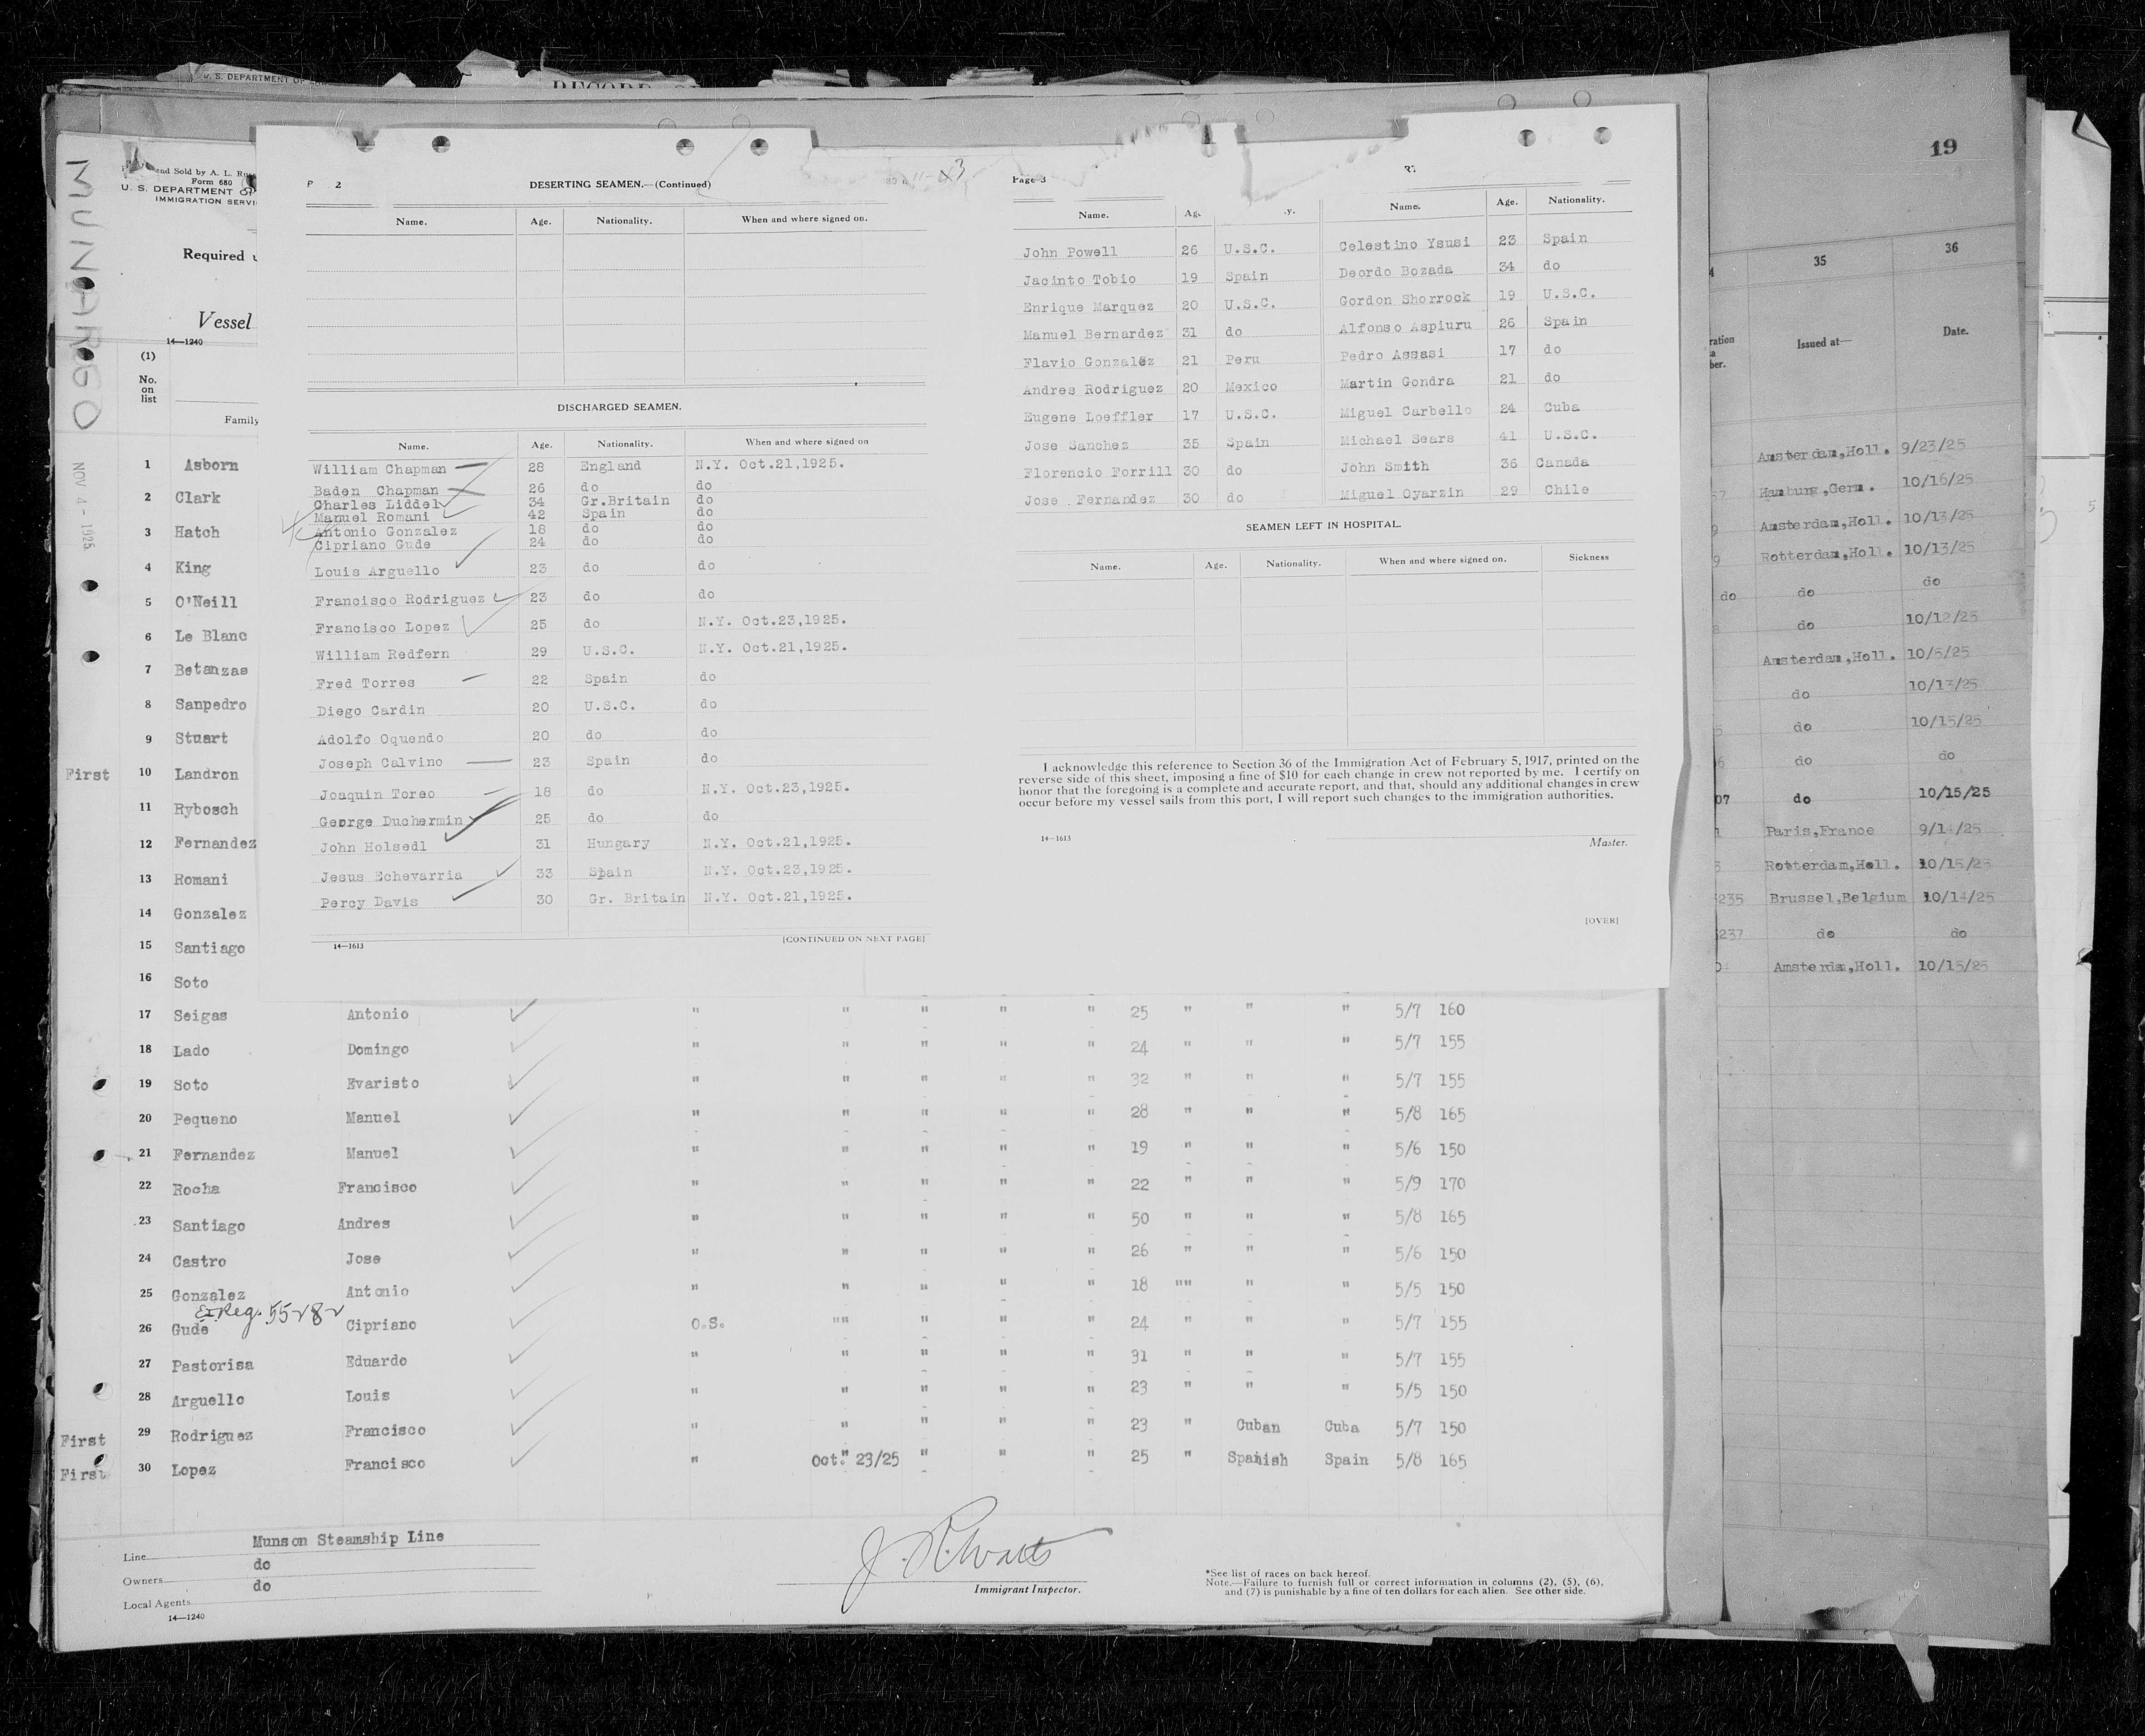 U. S. DEPARTMENT OF
RECORD
19
MUNARGO
NOV 4 - 1925
and Sold by A. L. Ru
Form 680
U. S. DEPARTMENT OF
IMMIGRATION SERVI
Required u
Vessel
14—1240
(1)
No.
on
list
Family
P 2
DESERTING SEAMEN.—(Continued)
Name. Age. Nationality. When and where signed on.
DISCHARGED SEAMEN.
Name. Age. Nationality. When and where signed on
William Chapman 28 England N.Y. Oct.21,1925.
Baden Chapman 26 do do
Charles Liddel 34 Gr.Britain do
Manuel Romani 42 Spain do
Antonio Gonzalez 18 do do
Cipriano Gude 24 do do
Louis Arguello 23 do do
Francisco Rodriguez 23 do do
Francisco Lopez 25 do N.Y. Oct.23,1925.
William Redfern 29 U.S.C. N.Y. Oct.21,1925.
Fred Torres 22 Spain do
Diego Cardin 20 U.S.C. do
Adolfo Oquendo 20 do do
Joseph Calvino 23 Spain do
Joaquin Toreo 18 do N.Y. Oct.23,1925.
George Duchermin 25 do do
John Holsedl 31 Hungary N.Y. Oct.21,1925.
Jesus Echevarria 33 Spain N.Y. Oct.23,1925.
Percy Davis 30 Gr. Britain N.Y. Oct.21,1925.
14—1613
[CONTINUED ON NEXT PAGE]
Page 3
Name. Ag. y. Name. Age. Nationality.
John Powell 26 U.S.C. Celestino Ysusi 23 Spain
Jacinto Tobio 19 Spain Deordo Bozada 34 do
Enrique Marquez 20 U.S.C. Gordon Shorrock 19 U.S.C.
Manuel Bernardez 31 do Alfonso Aspiuru 26 Spain
Flavio Gonzalez 21 Peru Pedro Assasi 17 do
Andres Rodriguez 20 Mexico Martin Gondra 21 do
Eugene Loeffler 17 U.S.C. Miguel Carbello 24 Cuba
Jose Sanchez 35 Spain Michael Sears 41 U.S.C.
Florencio Forrill 30 do John Smith 36 Canada
Jose Fernandez 30 do Miguel Oyarzin 29 Chile
SEAMEN LEFT IN HOSPITAL.
Name. Age. Nationality. When and where signed on. Sickness
I acknowledge this reference to Section 36 of the Immigration Act of February 5, 1917, printed on the
reverse side of this sheet, imposing a fine of $10 for each change in crew not reported by me. I certify on
honor that the foregoing is a complete and accurate report, and that, should any additional changes in crew
occur before my vessel sails from this port, I will report such changes to the immigration authorities.
14—1613
Master.
[OVER]
1 Asborn
2 Clark
3 Hatch
4 King
5 O'Neill
6 Le Blanc
7 Betanzas
8 Sanpedro
9 Stuart
First 10 Landron
11 Rybosch
12 Fernandez
13 Romani
14 Gonzalez
15 Santiago
16 Soto
17 Seigas Antonio " " " " " 25 " " " 5/7 160
18 Lado Domingo " " " " " 24 " " " 5/7 155
19 Soto Evaristo " " " " " 32 " " " 5/7 155
20 Pequeno Manuel " " " " " 28 " " " 5/8 165
21 Fernandez Manuel " " " " " 19 " " " 5/6 150
22 Rocha Francisco " " " " " 22 " " " 5/9 170
23 Santiago Andres " " " " " 50 " " " 5/8 165
24 Castro Jose " " " " " 26 " " " 5/6 150
25 Gonzalez Antonio " " " " " 18 "" " " 5/5 150
Reg. 55282
26 Gude Cipriano O.S. "" " " " 24 " " " 5/7 155
27 Pastorisa Eduardo " " " " " 31 " " " 5/7 155
28 Arguello Louis " " " " " 23 " " " 5/5 150
First 29 Rodriguez Francisco " " " " " 23 " Cuban Cuba 5/7 150
First 30 Lopez Francisco " Oct. 23/25 " " " 25 " Spanish Spain 5/8 165
Line Munson Steamship Line
Owners do
Local Agents do
14—1240
Immigrant Inspector.
*See list of races on back hereof.
Note.—Failure to furnish full or correct information in columns (2), (5), (6),
and (7) is punishable by a fine of ten dollars for each alien. See other side.
35 36
Issued at— Date.
Amsterdam,Holl. 9/23/25
Hamburg,Germ. 10/16/25
Amsterdam,Holl. 10/13/25
Rotterdam,Holl. 10/13/25
do do do
do 10/12/25
Amsterdam,Holl. 10/5/25
do 10/13/25
do 10/15/25
do do
07 do 10/15/25
Paris,France 9/14/25
Rotterdam,Holl. 10/15/25
235 Brussel,Belgium 10/14/25
237 do do
Amsterdam,Holl. 10/15/25